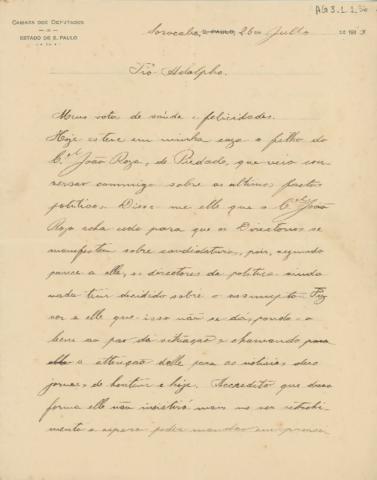 CAMARA DOS DEPUTADOS
DO
ESTADO DE S. PAULO
AG3.1.1
Sorocaba, S. PAULO, 26 de Julho DE 1913
Tio Adolpho.
Meus votos de saúde e felicidades.
Hoje esteve em minha caza o filho do
Cel João Roza, de Piedade, que veio con-
versar commigo sobre os ultimos factos
politicos. Disse-me elle que o Cel João
Roza acha cedo para que os Directorios se
manifestem sobre candidaturas, pois, segundo
parece a elle, os directores da politica ainda
nada tem decidido sobre o assumpto. Fiz
ver a elle que isso não se dá, pondo-o
bem ao par da situação e chamando para
a attenção delle para as noticias dos
jornaes de hontem e hoje. Accredito que dessa
forma elle não insistirá mais no seu retrahi-
mento e espero poder mandar em